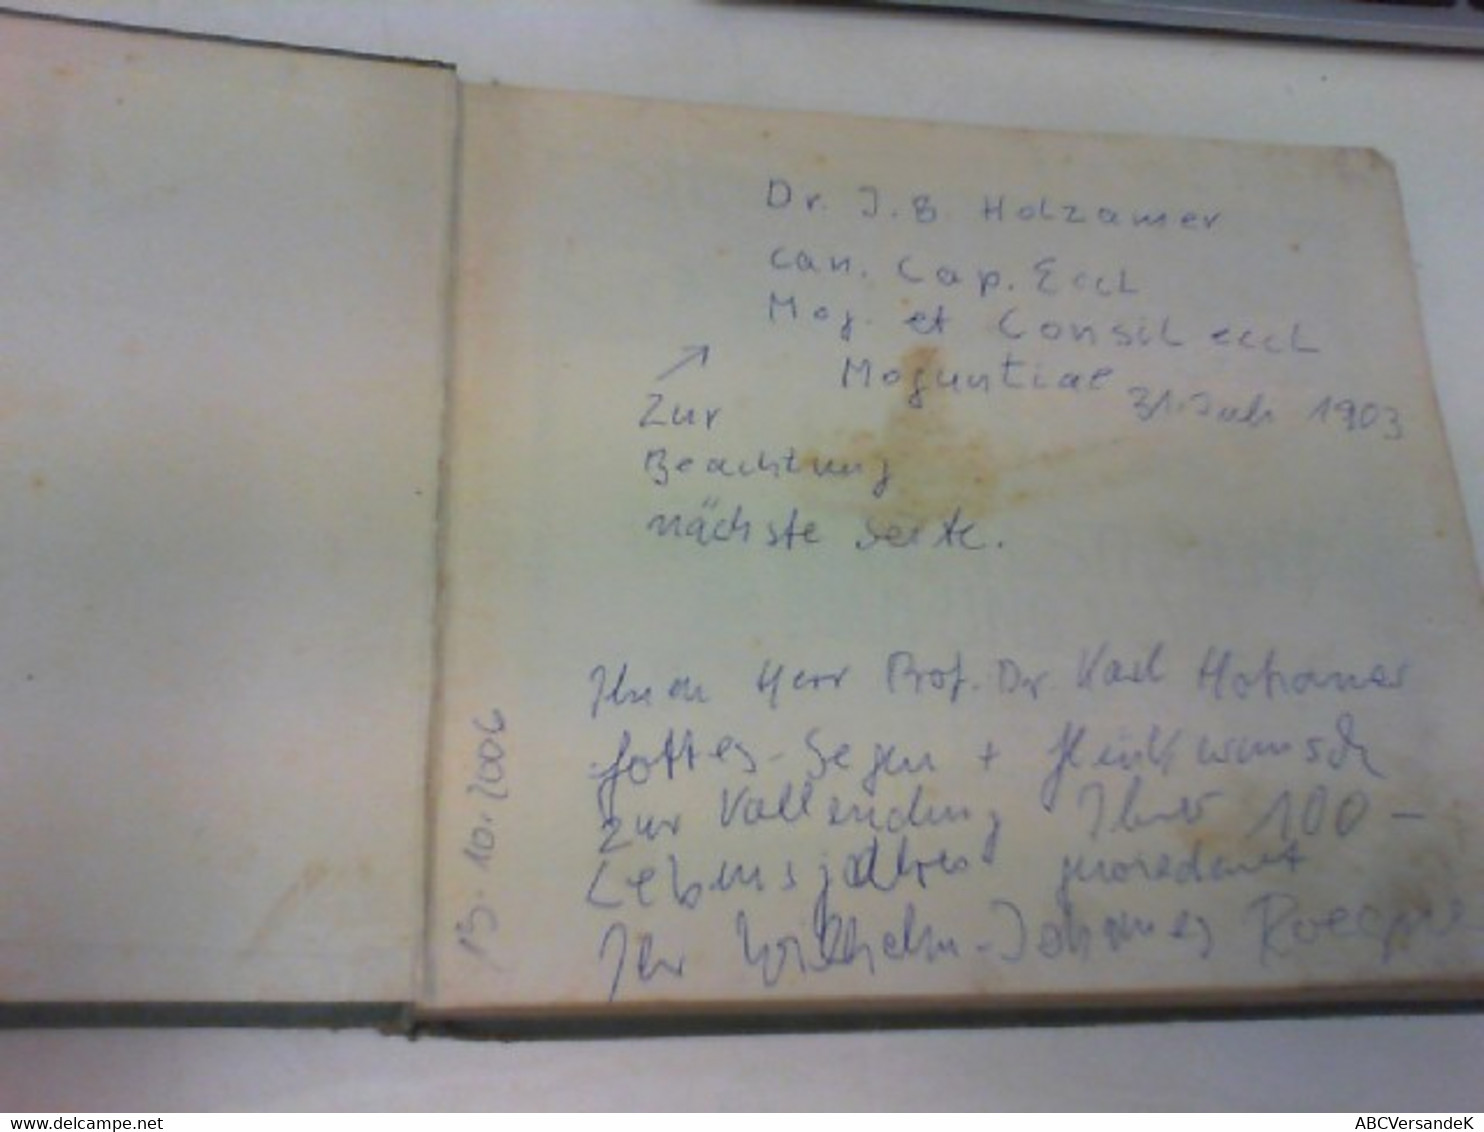 Dr. J. B. Holzamer
can. Cap. Eccl
Mog. et Consil eccl
Moguntiae 31. Juli 1903
↗
Zur
Beachtung
nächste Seite.
Ihnen Herr Prof. Dr. Karl Holzamer
Gottes-Segen + Glückwunsch
zur Vollendung Ihres 100 -
Lebensjahres
Ihr Wilhelm-Johannes
13.10.2006
www.abcversand.net
ABCVersandeK